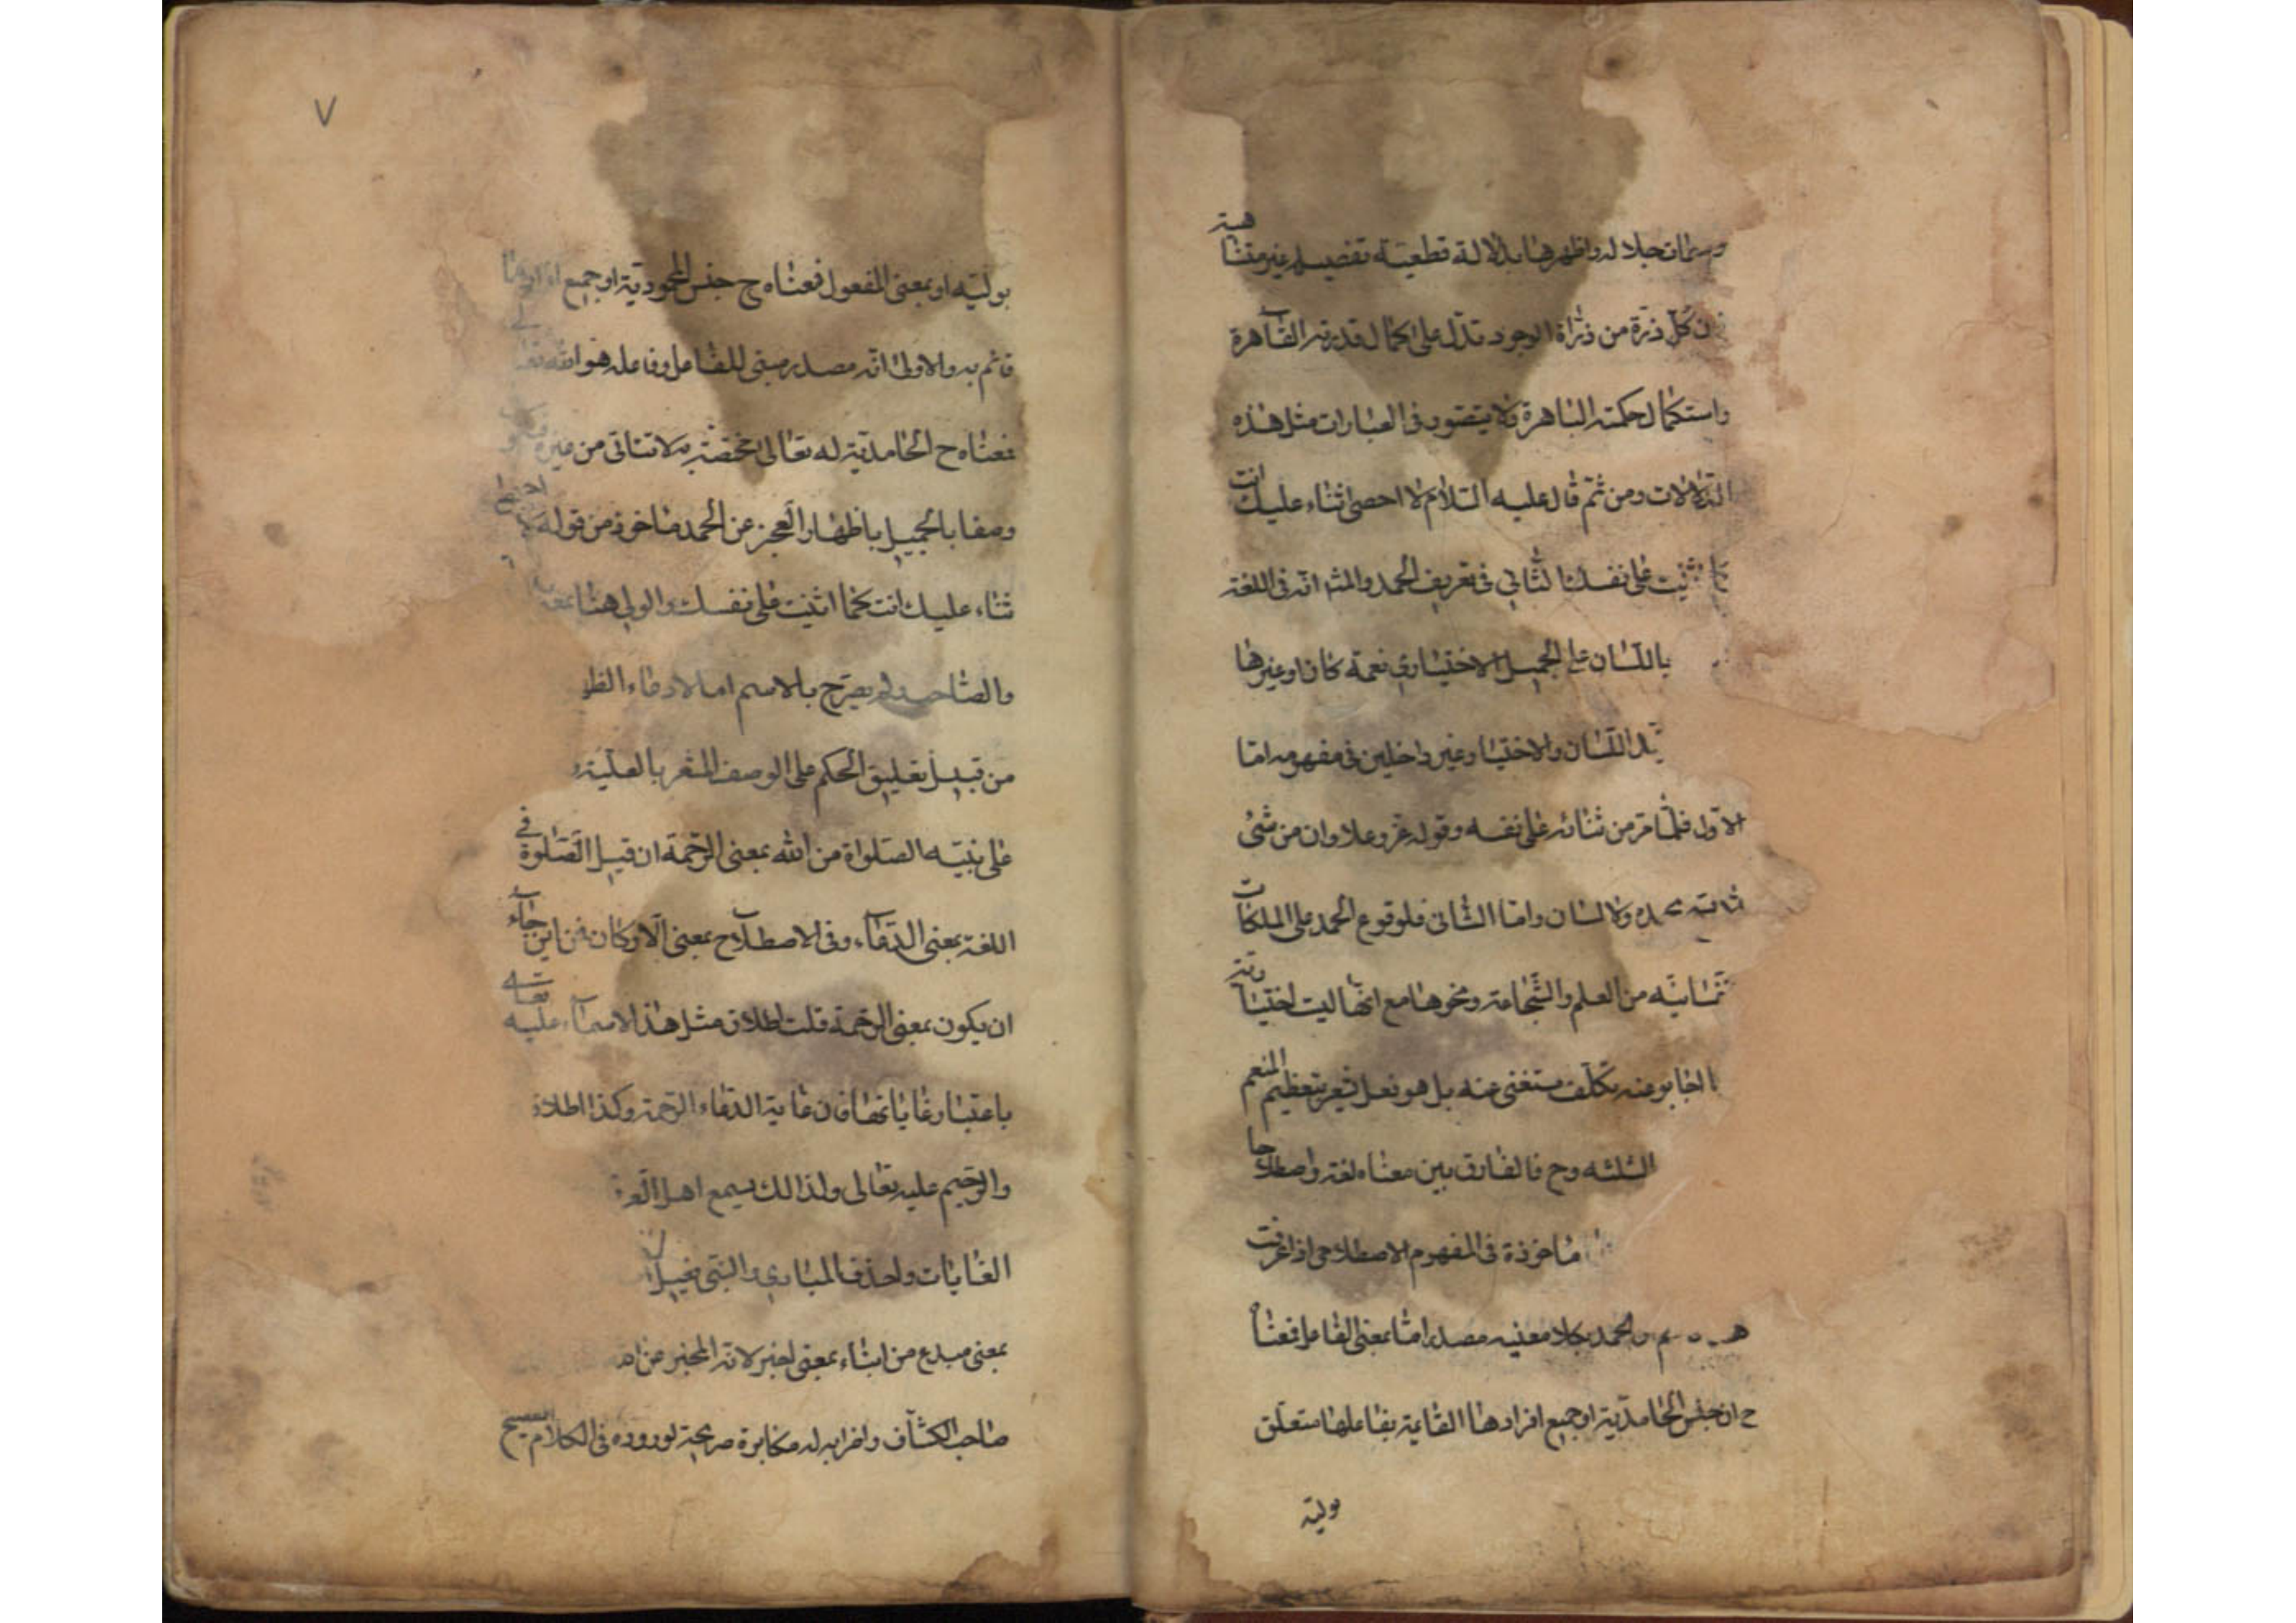 جلاله واظهرها بدلالة قطعيته تفصيله غير متناهية
كل ذرة من ذراة الوجود تدل على كمال قدرته القاهرة
واستكمال حكمته الباهرة ولا يتصور فى العبارات مثل هذه
الدلالات ومن ثم قال عليه السلام لا احصى ثناء عليك انت
كما اثنيت على نفسك الثانى فى تعريف الحمد والمش انه فى اللغة
باللسان على الجميل الاختيارى نعمة كان او غيرها
اللسان والاختيار غير داخلين فى مفهومه اما
الاول فلما مر من ثنائه على نفسه وقوله عز وعلا وان من شئ
بحمده ولا لسان واما الثانى فلوقوع الحمد على الملكات
من العلم والشجاعة ونحوها مع انها ليت اختيارية
عنه تكلف مستغنى عنه بل هو فعل يشعر بتعظيم المنعم
الثلثه وح فالفارق بين معناه لغة واصطلاحا
ماخوذة فى المفهوم الاصطلاحى اذا عرفت
والحمد بكلا معنييه مصدر اما بمعنى الفاعل فمعناه
ح ان جنس الحامدية او جميع افرادها القايمة بفاعلها متعلق
بوليته
٧
بوليته او بمعنى المفعول فمعناه ح جنس المحمودية او جميع افرادها
قائم به والاولى انه مصدر مبنى للفاعل وفاعله هو الله تعالى
فمعناه ح الحامدية له تعالى مختصة به لا تتأتى من غيره
وصفا بالجميل باظهار العجز عن الحمد ماخوذ من قوله لا احصى
ثناء عليك انت كما اثنيت على نفسك والولى هنا بمعنى
والصاحب ولم يصرح بالاسم اما لادعاء
من قبيل تعليق الحكم على الوصف المشعر بالعلية
على نبيه الصلواة من الله بمعنى الرحمة ان قيل الصلوة فى
اللغة بمعنى الدعاء وفى الاصطلاح بمعنى الاركان فمن اين جاء
ان يكون بمعنى الرحمة قلت اطلاق مثل هذا الاسماء عليه تعالى
باعتبار غاياتها فان غاية الدعاء الرحمة وكذا اطلاق
والرحيم عليه تعالى ولذالك يسمع اهل
الغايات واحذف المبادى والنبى فعيل
بمعنى مبدع من انباء بمعنى اخبر لانه المخبر عن
صاحب الكشاف واضرابه له مكابرة صريحة لوروده فى الكلام الفصيح